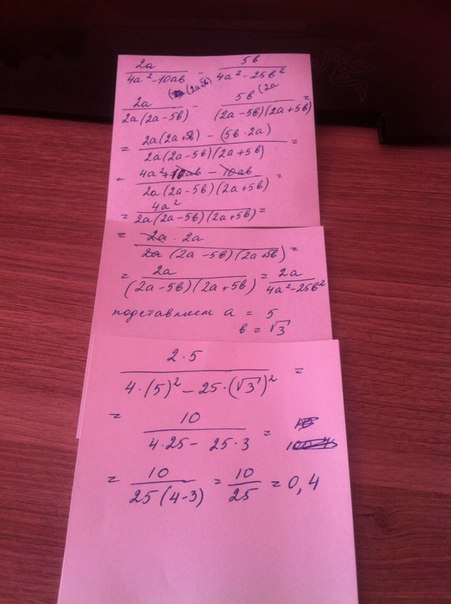 2a/(4a² - 10ab) - 5b/(4a² - 25b²)
2a/(2a(2a - 5b)) (2a+5b) - 5b/((2a - 5b)(2a + 5b)) (2a =
= (2a(2a + 5b) - (5b · 2a))/(2a(2a - 5b)(2a + 5b)) =
= (4a² + 10ab - 10ab)/(2a(2a - 5b)(2a + 5b)) =
= 4a²/(2a(2a - 5b)(2a + 5b)) =
= (2a · 2a)/(2a(2a - 5b)(2a + 5b)) =
= 2a/((2a - 5b)(2a + 5b)) = 2a/(4a² - 25b²)
подставляем a = 5
b = √3
(2 · 5)/(4 · (5)² - 25 · (√3)²) =
= 10/(4 · 25 - 25 · 3) =
= 10/(25(4 - 3)) = 10/25 = 0,4